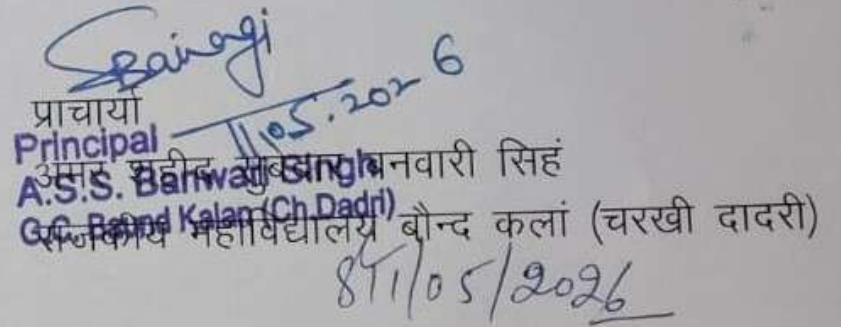 Sbairagi
11.05.2026
प्राचार्या
Principal
अमर शहीद सुबेदार बनवारी सिहं
A.S.S. Banwari Singh
G.C. Baund Kalan (Ch.Dadri)
राजकीय महाविद्यालय बौन्द कलां (चरखी दादरी)
11/05/2026